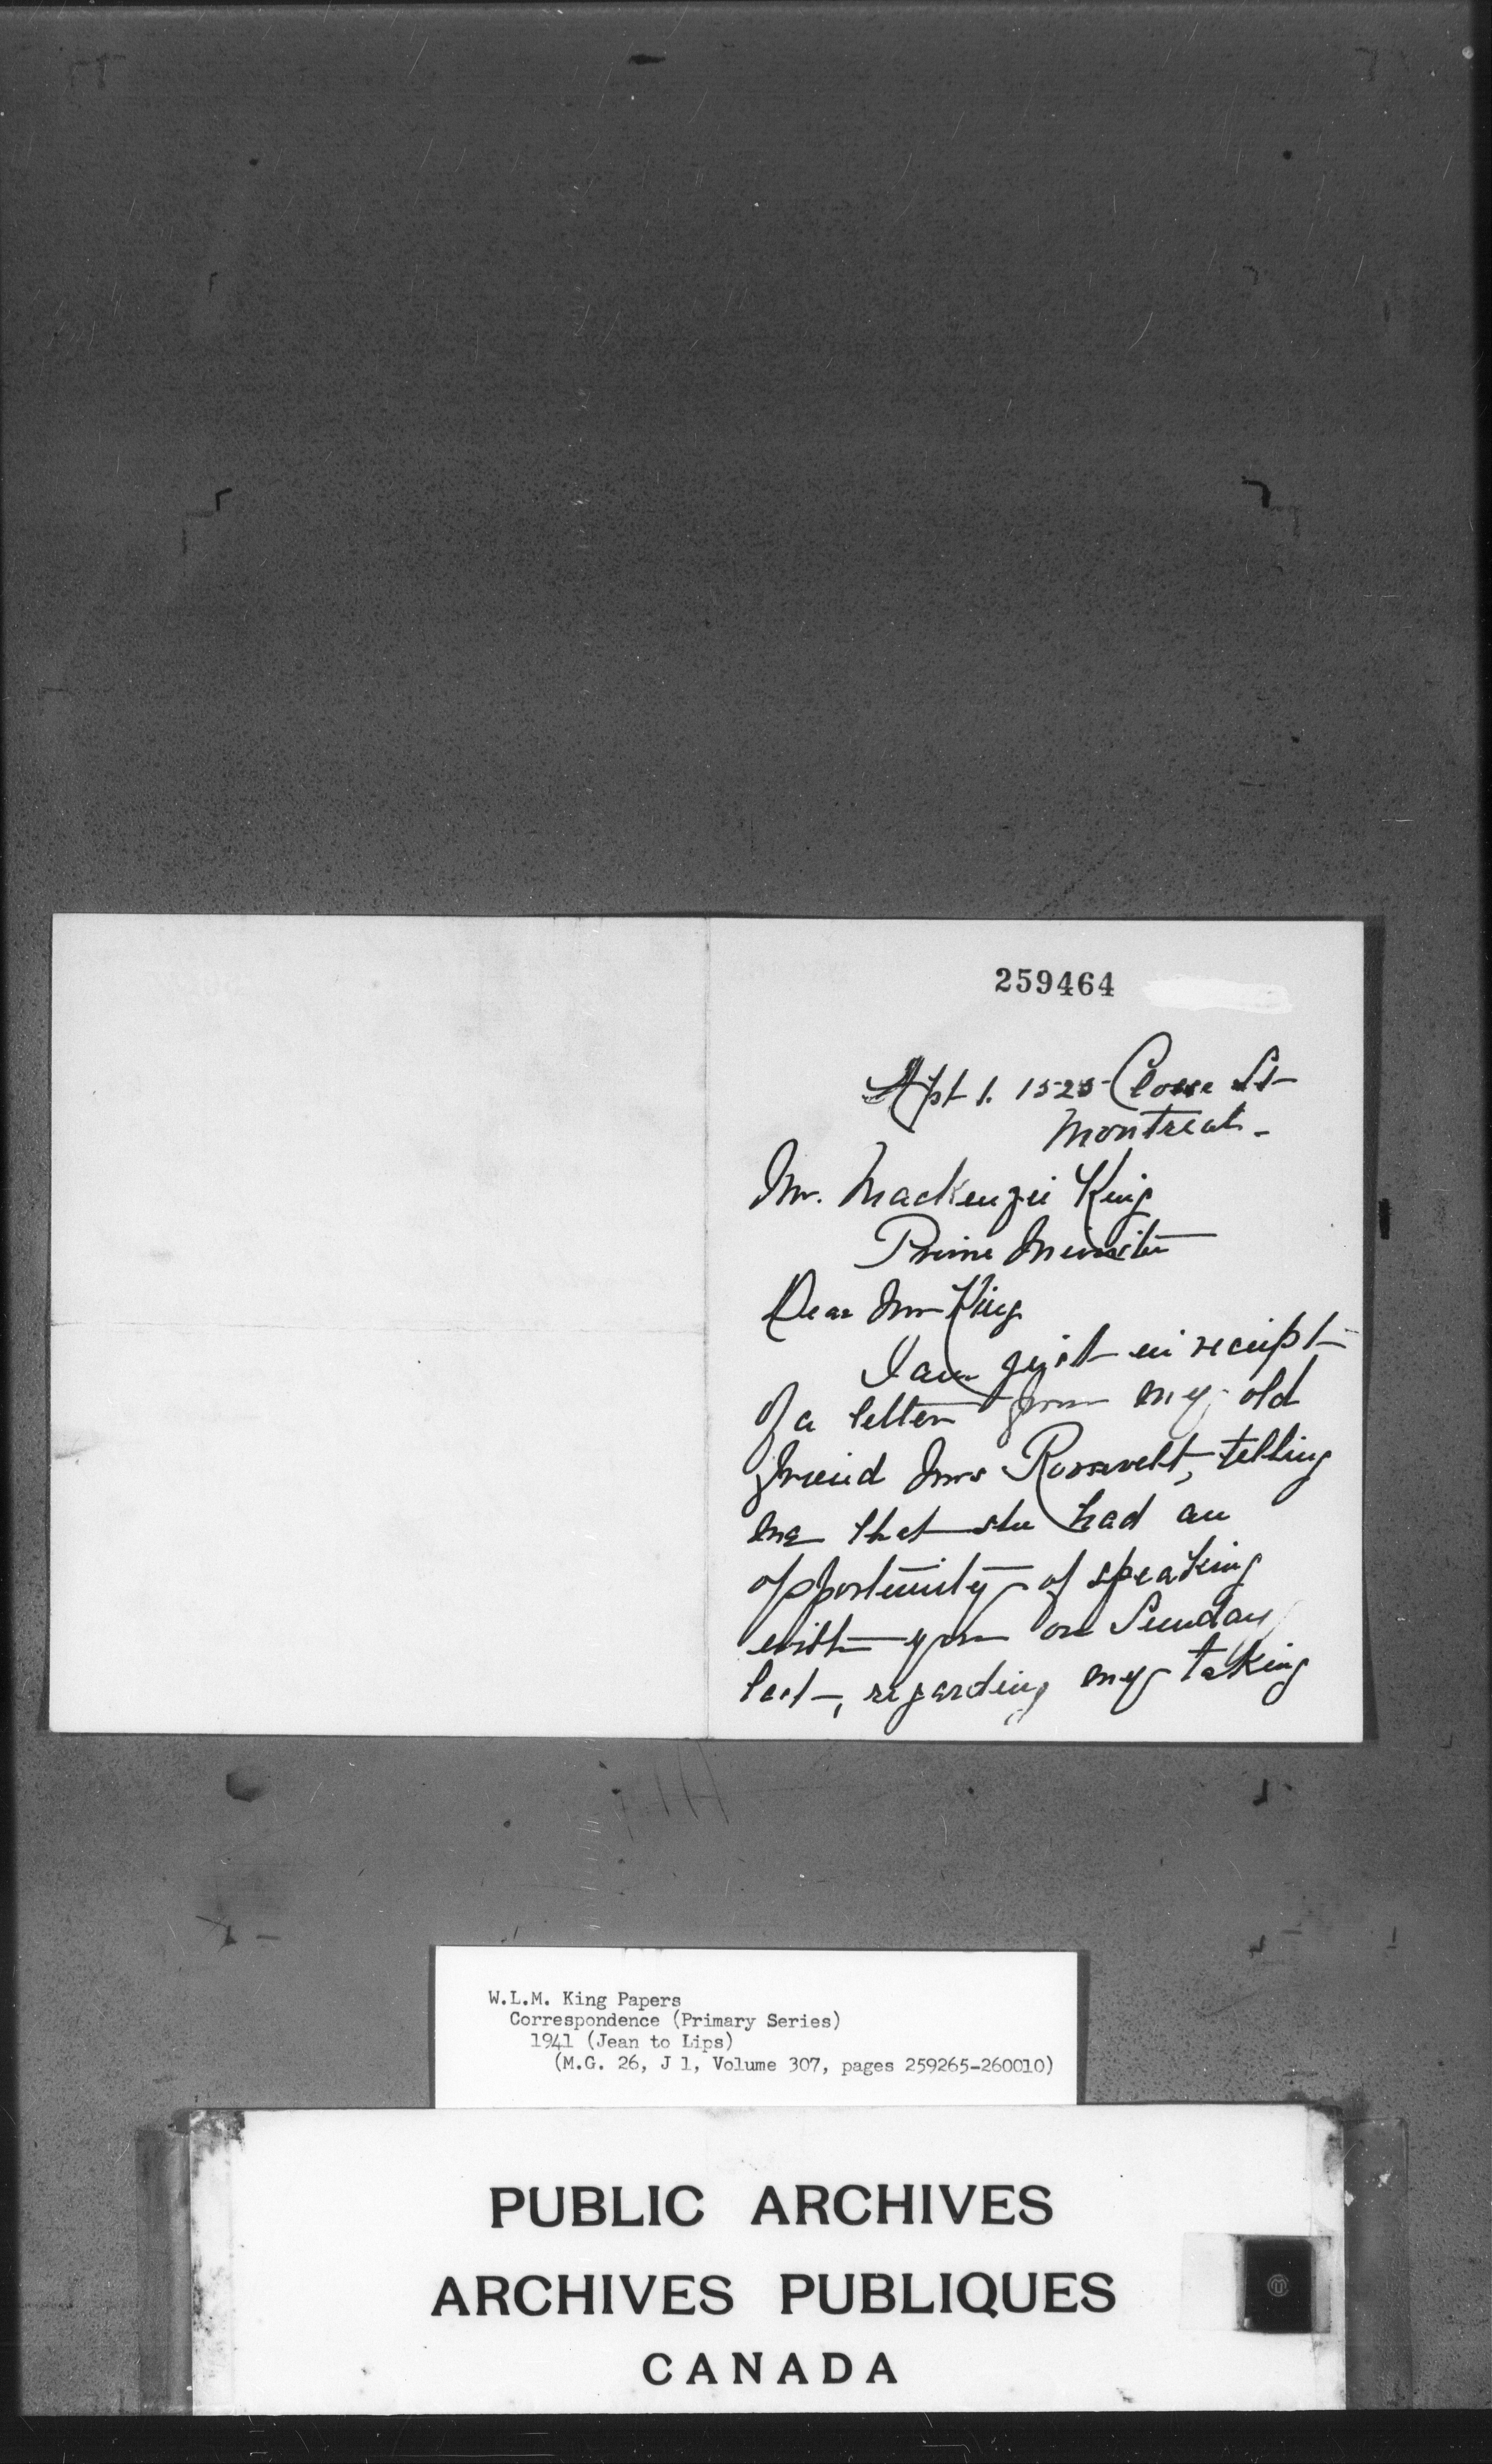 259464
Apt 1. 1525 Closse St
Montreal.
Mr. Mackenzie King
Prime Minister
Dear Mr King
I am just in receipt
of a letter from my old
friend Mrs Roosevelt, telling
me that she had an
opportunity of speaking
with you on Sunday
last, regarding my taking
W.L.M. King Papers
Correspondence (Primary Series)
1941 (Jean to Lips)
(M.G. 26, J 1, Volume 307, pages 259265-260010)
PUBLIC ARCHIVES
ARCHIVES PUBLIQUES
CANADA